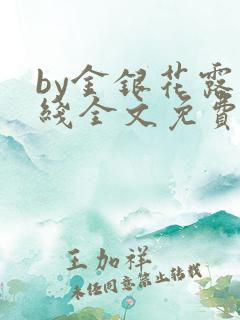 by金银花露
线全文免费
王加祥
未经同意禁止转载